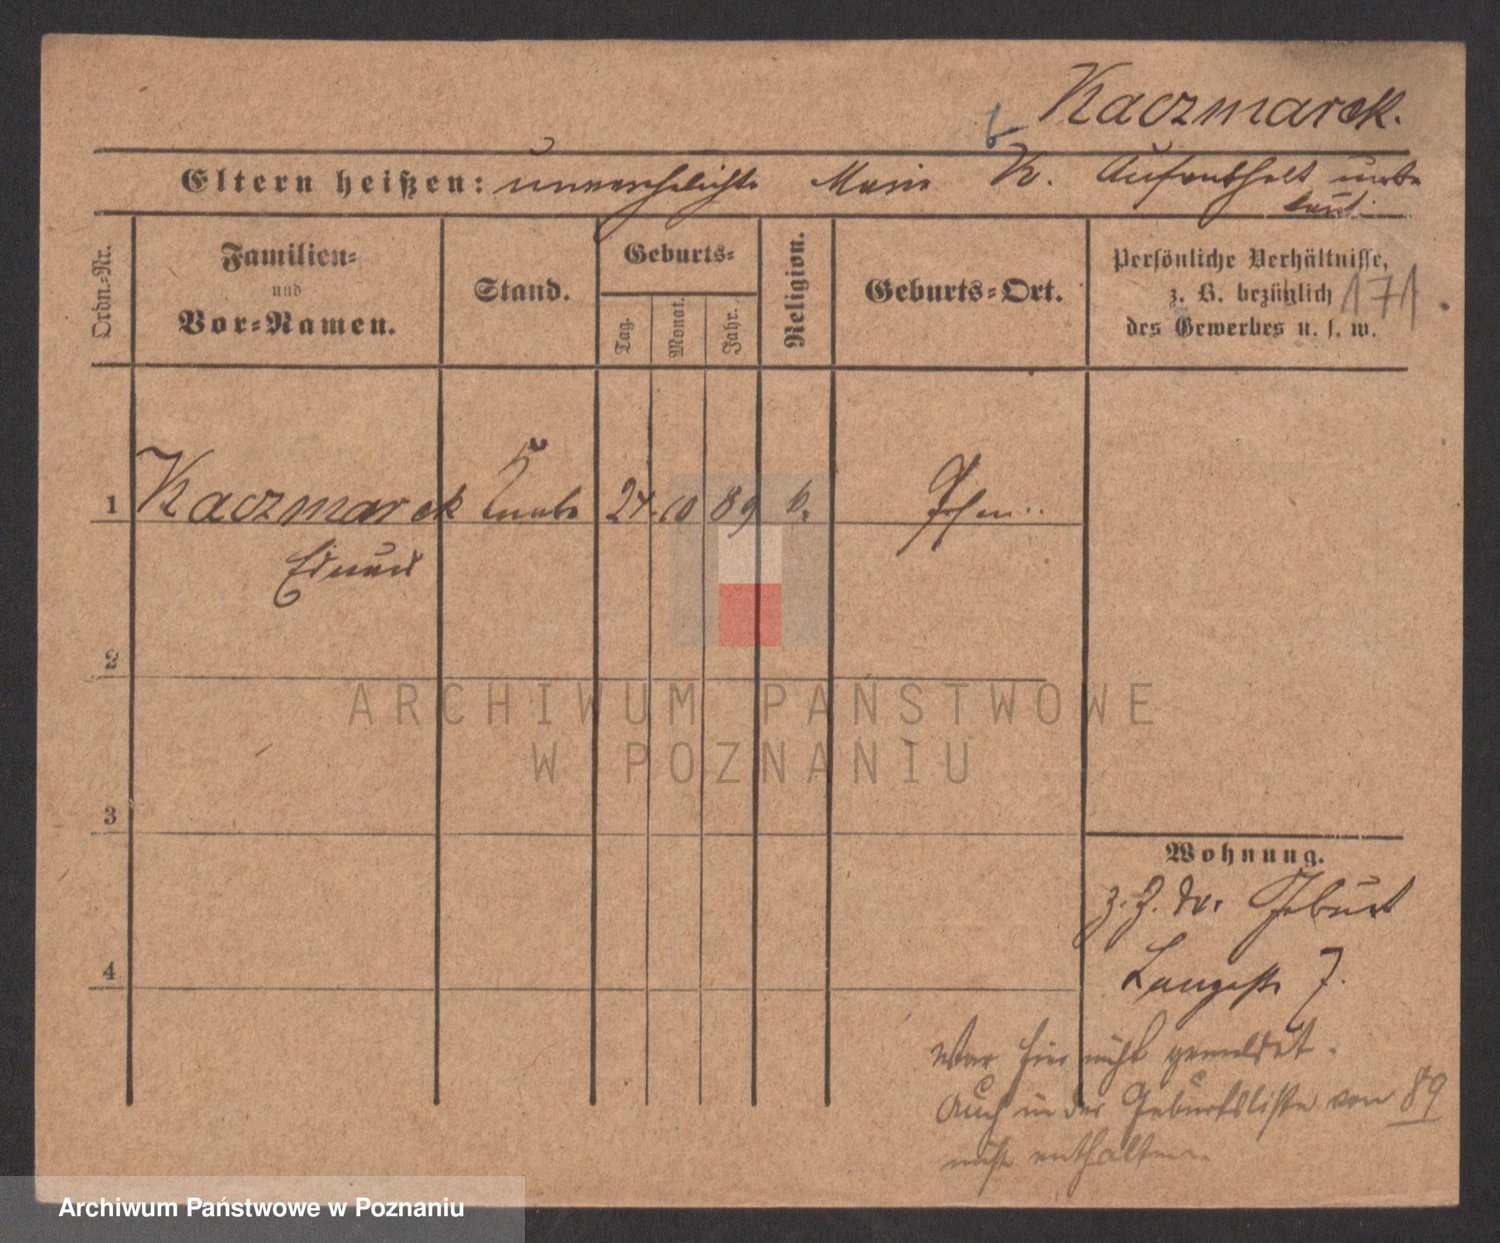 Kaczmarek.
Eltern heißen: unverehelichte Marie K. Aufenthalt unbe
kannt
Ordn.=Nr.
Familien=
und
Vor=Namen.
Stand.
Geburts=
Tag.
Monat.
Jahr.
Religion.
Geburts=Ort.
Persönliche Verhältnisse,
z. B. bezüglich
des Gewerbes u. s. w.
171
1 Kaczmarek Knabe 24. 10 89 k.
Eduard
2
3
4
Wohnung.
z. Z. der Geburt
Langestr 7.
War hier nicht gemeldet.
Auch in der Geburtsliste von 89
nicht enthalten.
ARCHIWUM PAŃSTWOWE
W POZNANIU
Archiwum Państwowe w Poznaniu